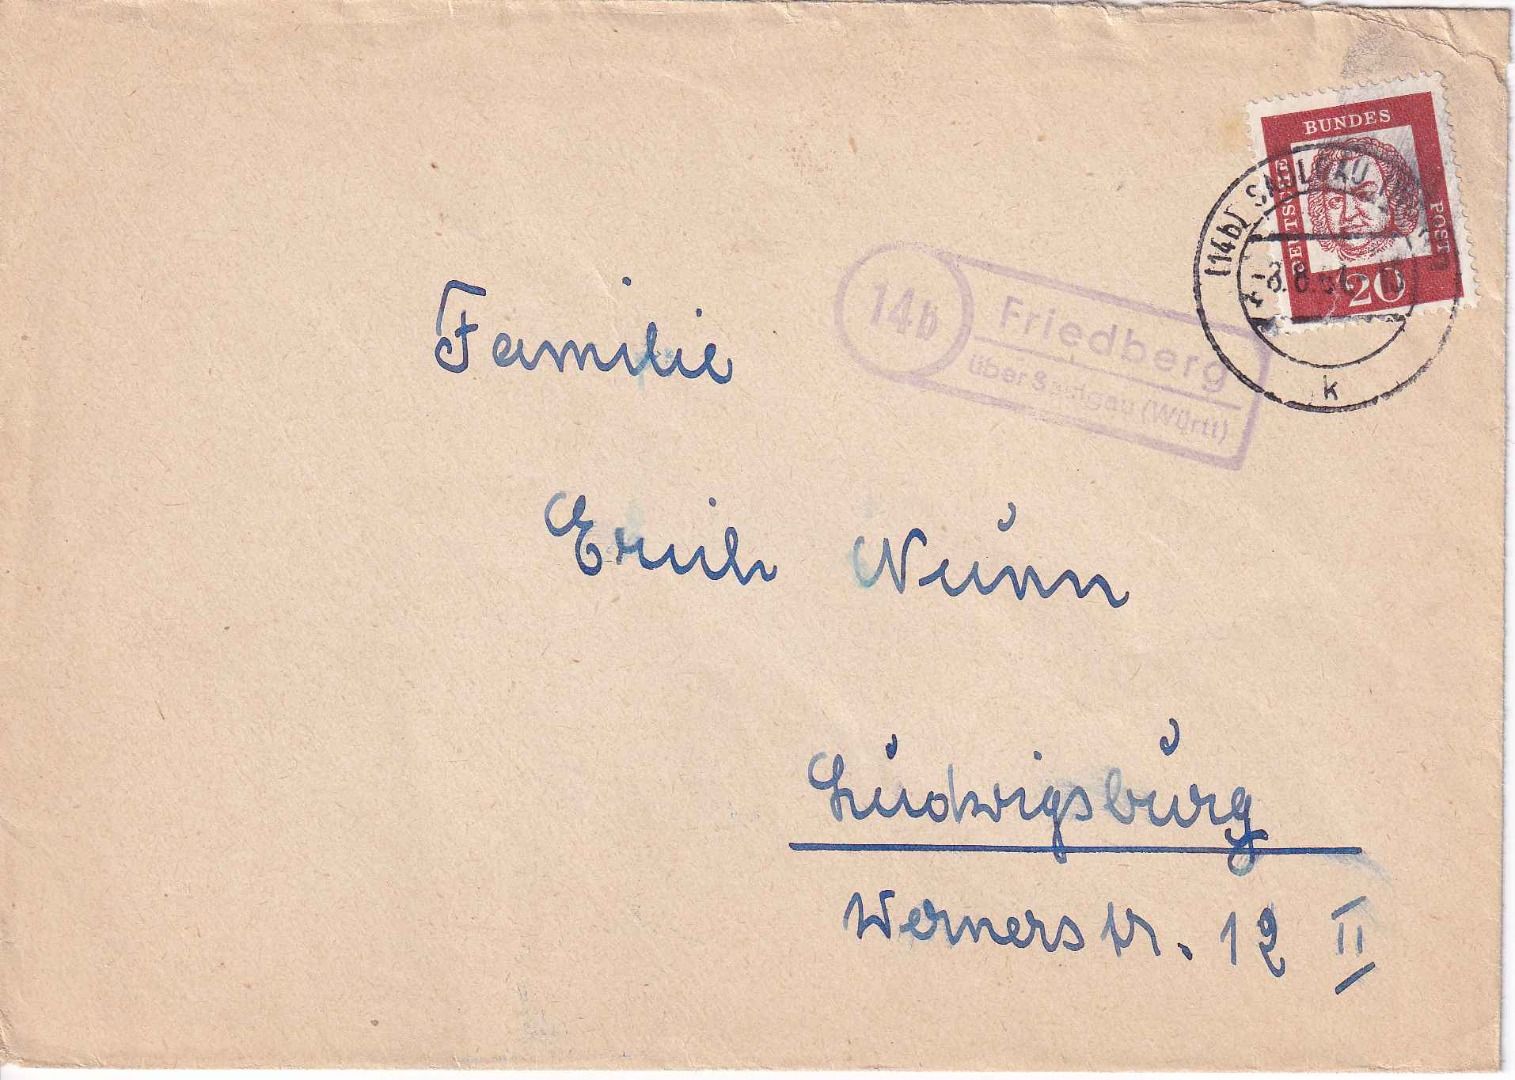 BUNDES
DEUTSCHE
POST
20
(14b) SAULGAU
-8.8.61.-15
k
14b
Friedberg
über Saulgau (Württ)
Familie
Erich Nunn
Ludwigsburg
Wernerstr. 12 II